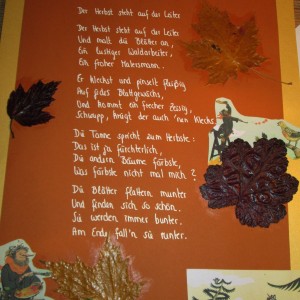 Der Herbst steht auf der Leiter
Der Herbst steht auf der Leiter
Und malt die Blätter an,
Ein lustiger Waldarbeiter,
Ein froher Malersmann.
Er kleckst und pinselt fleißig
Auf jedes Blattgewächs,
Und kommt ein frecher Zeisig,
Schwupp, kriegt der auch 'nen Klecks.
Die Tanne spricht zum Herbste:
Das ist ja fürchterlich,
Die andern Bäume färbste,
Was färbste nicht mal mich?
Die Blätter flattern munter
Und finden sich so schön.
Sie werden immer bunter.
Am Ende fall'n sie runter.